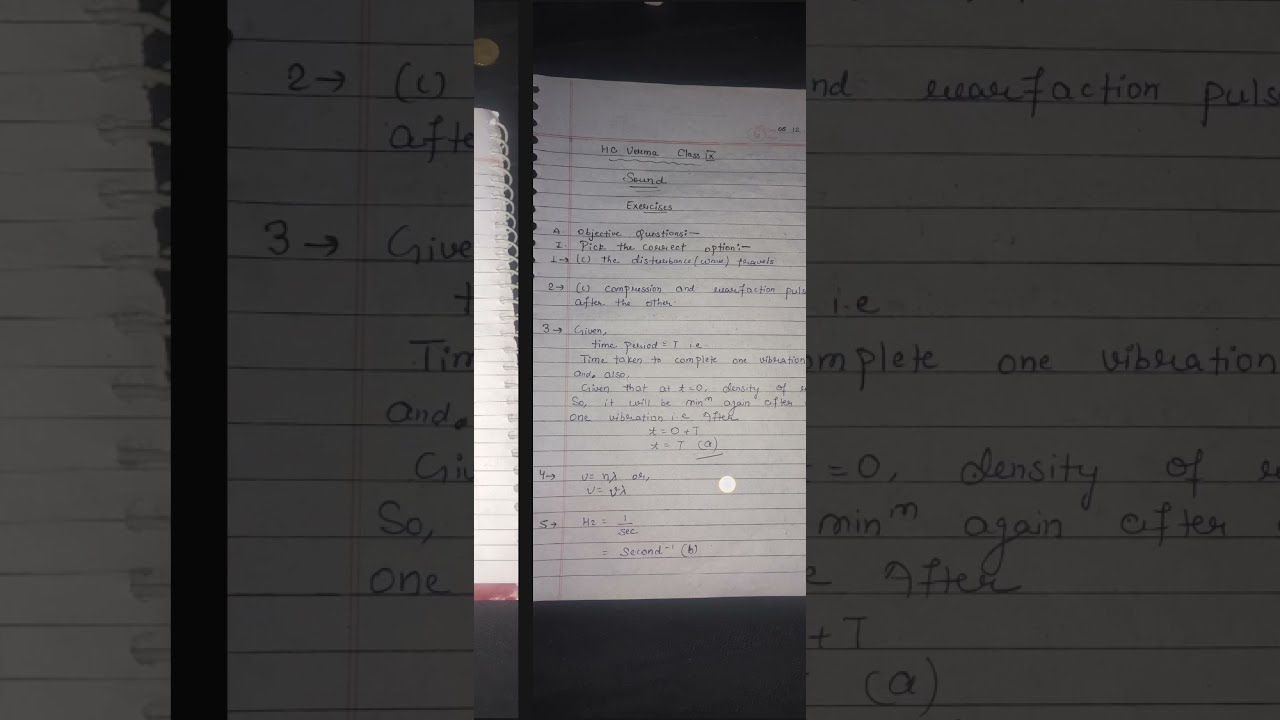 06 12
HC Verma Class IX
Sound
Exercises
A. Objective Questions:—
I. Pick the correct option:—
1→ (c) the disturbance (wave) travels
2→ (c) compression and rarefaction puls
after the other.
3→ Given,
time period = T i.e
Time taken to complete one vibration
and, also,
Given that at t=0, density of
So, it will be minᵐ again after
one vibration i.e After
t = 0 + T
t = T (a)
4→ v = nλ or,
v = νλ
5→ Hz = 1/sec
= Second⁻¹ (b)